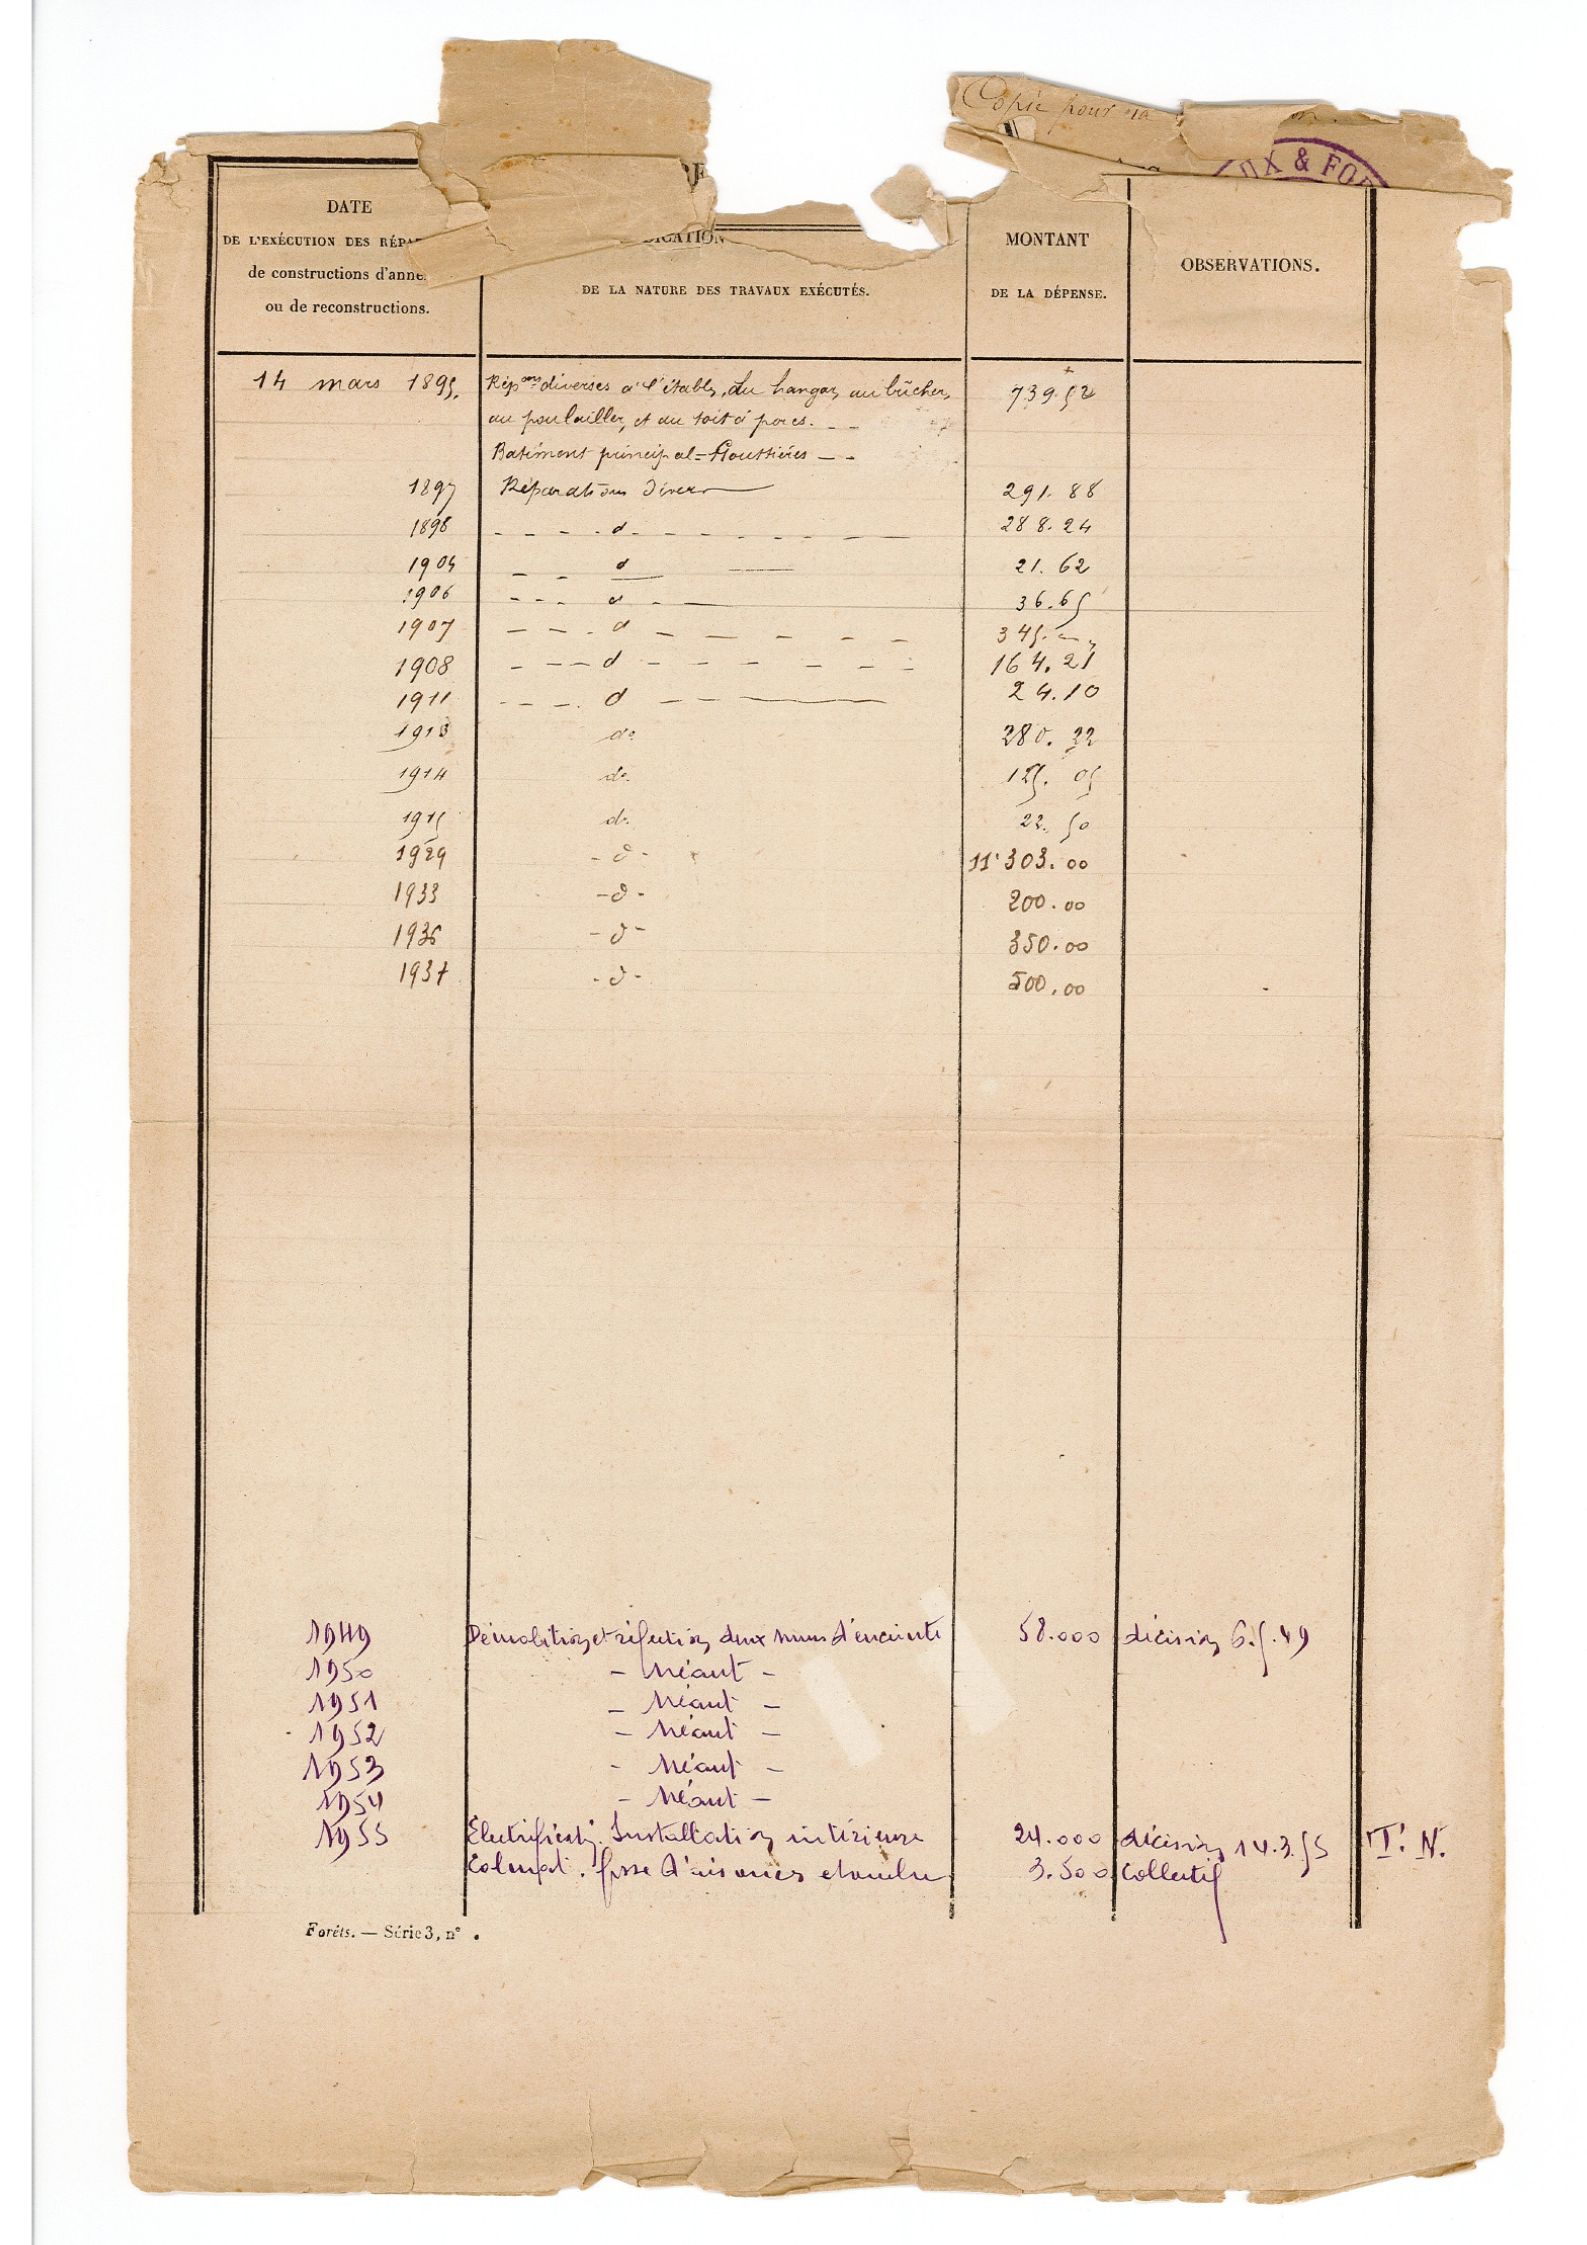 Copie pour
OX & FOR
DATE
DE L'EXÉCUTION DES RÉPA
de constructions d'anne
ou de reconstructions.
DICATION
DE LA NATURE DES TRAVAUX EXÉCUTÉS.
MONTANT
DE LA DÉPENSE.
OBSERVATIONS.
14 mars 1895. Répons diverses à l'étable, du hangar, au bûcher, 739.52
au poulailler, et au toit à porcs.
Batiment principal =
1897 Réparations diverses 291.88
1898 - - - - d - - - - 288.24
1904 - - d 21.62
1906 - - - d - 36.65
1907 - - - d - - - - - - 345. -
1908 - - - d - - - - - - 164.21
1911 - - - d - - 24.10
1913 do 280.22
1914 do 125.05
1915 do 22.50
1929 - d - 11'303.00
1933 - d - 200.00
1936 - d - 350.00
1937 - d - 500.00
1949 Démolition et réfection deux murs d'enceinte 58.000 décision 6.5.49
1950 - Néant -
1951 - Néant -
1952 - Néant -
1953 - Néant -
1954 - Néant -
1955 Electrificati. Installation intérieure 24.000 décision 14.3.55 T. N.
Colmat. fosse d'aisances 3.500 Collectif
Forêts. — Série 3, n°